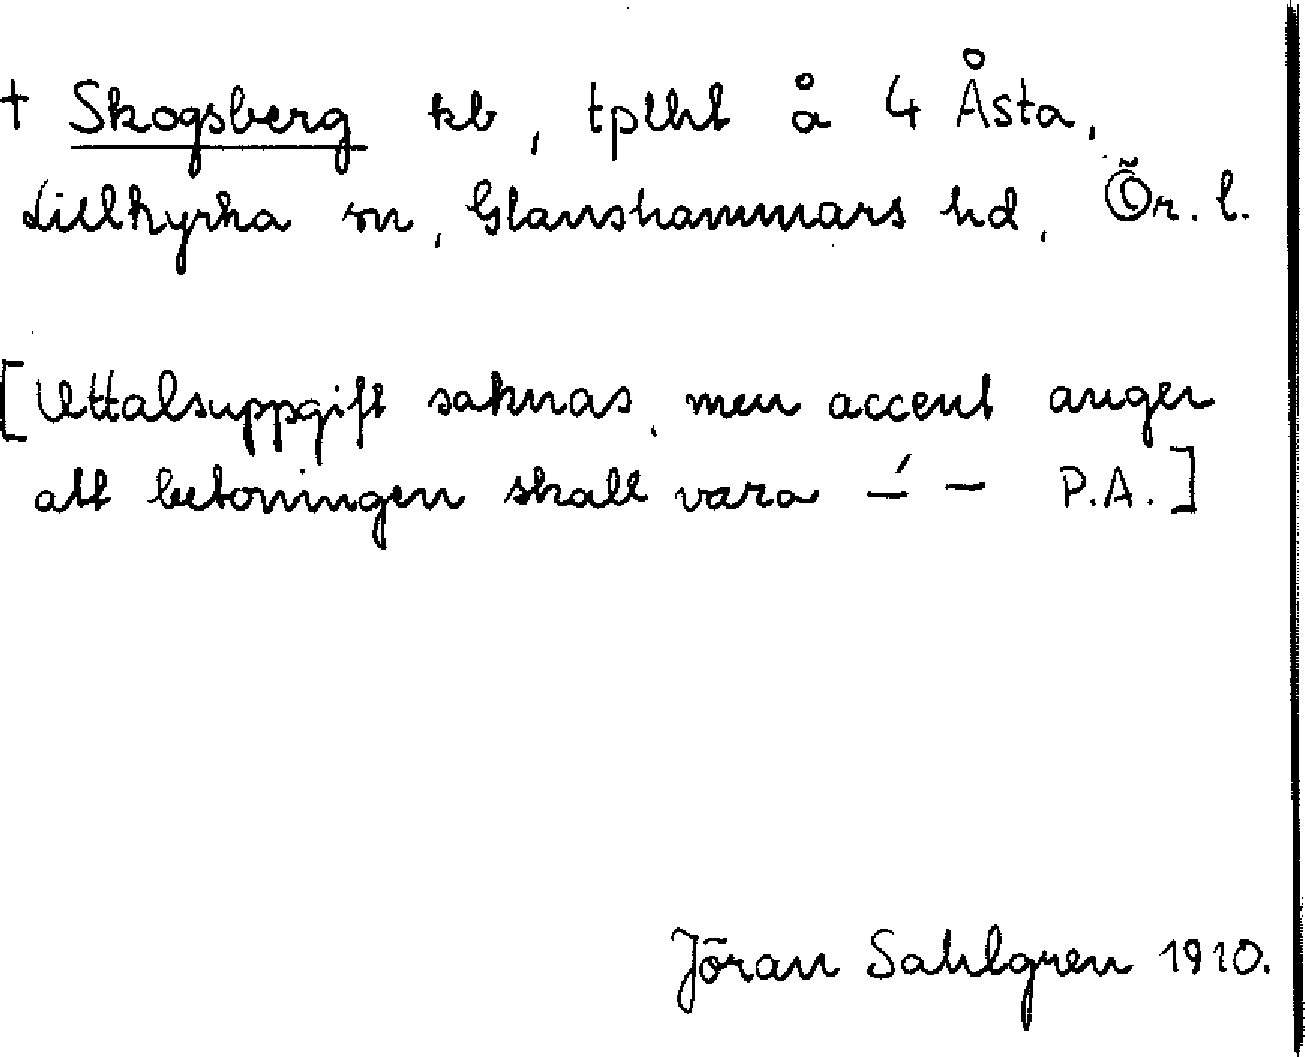 † Skogsberg kb, tplht å 4 Åsta,
Lillkyrka sn, Glanshammars hd, Ör. l.
[Uttalsuppgift saknas, men accent anger
att betoningen skall vara –́ – P.A.]
Jöran Sahlgren 1910.